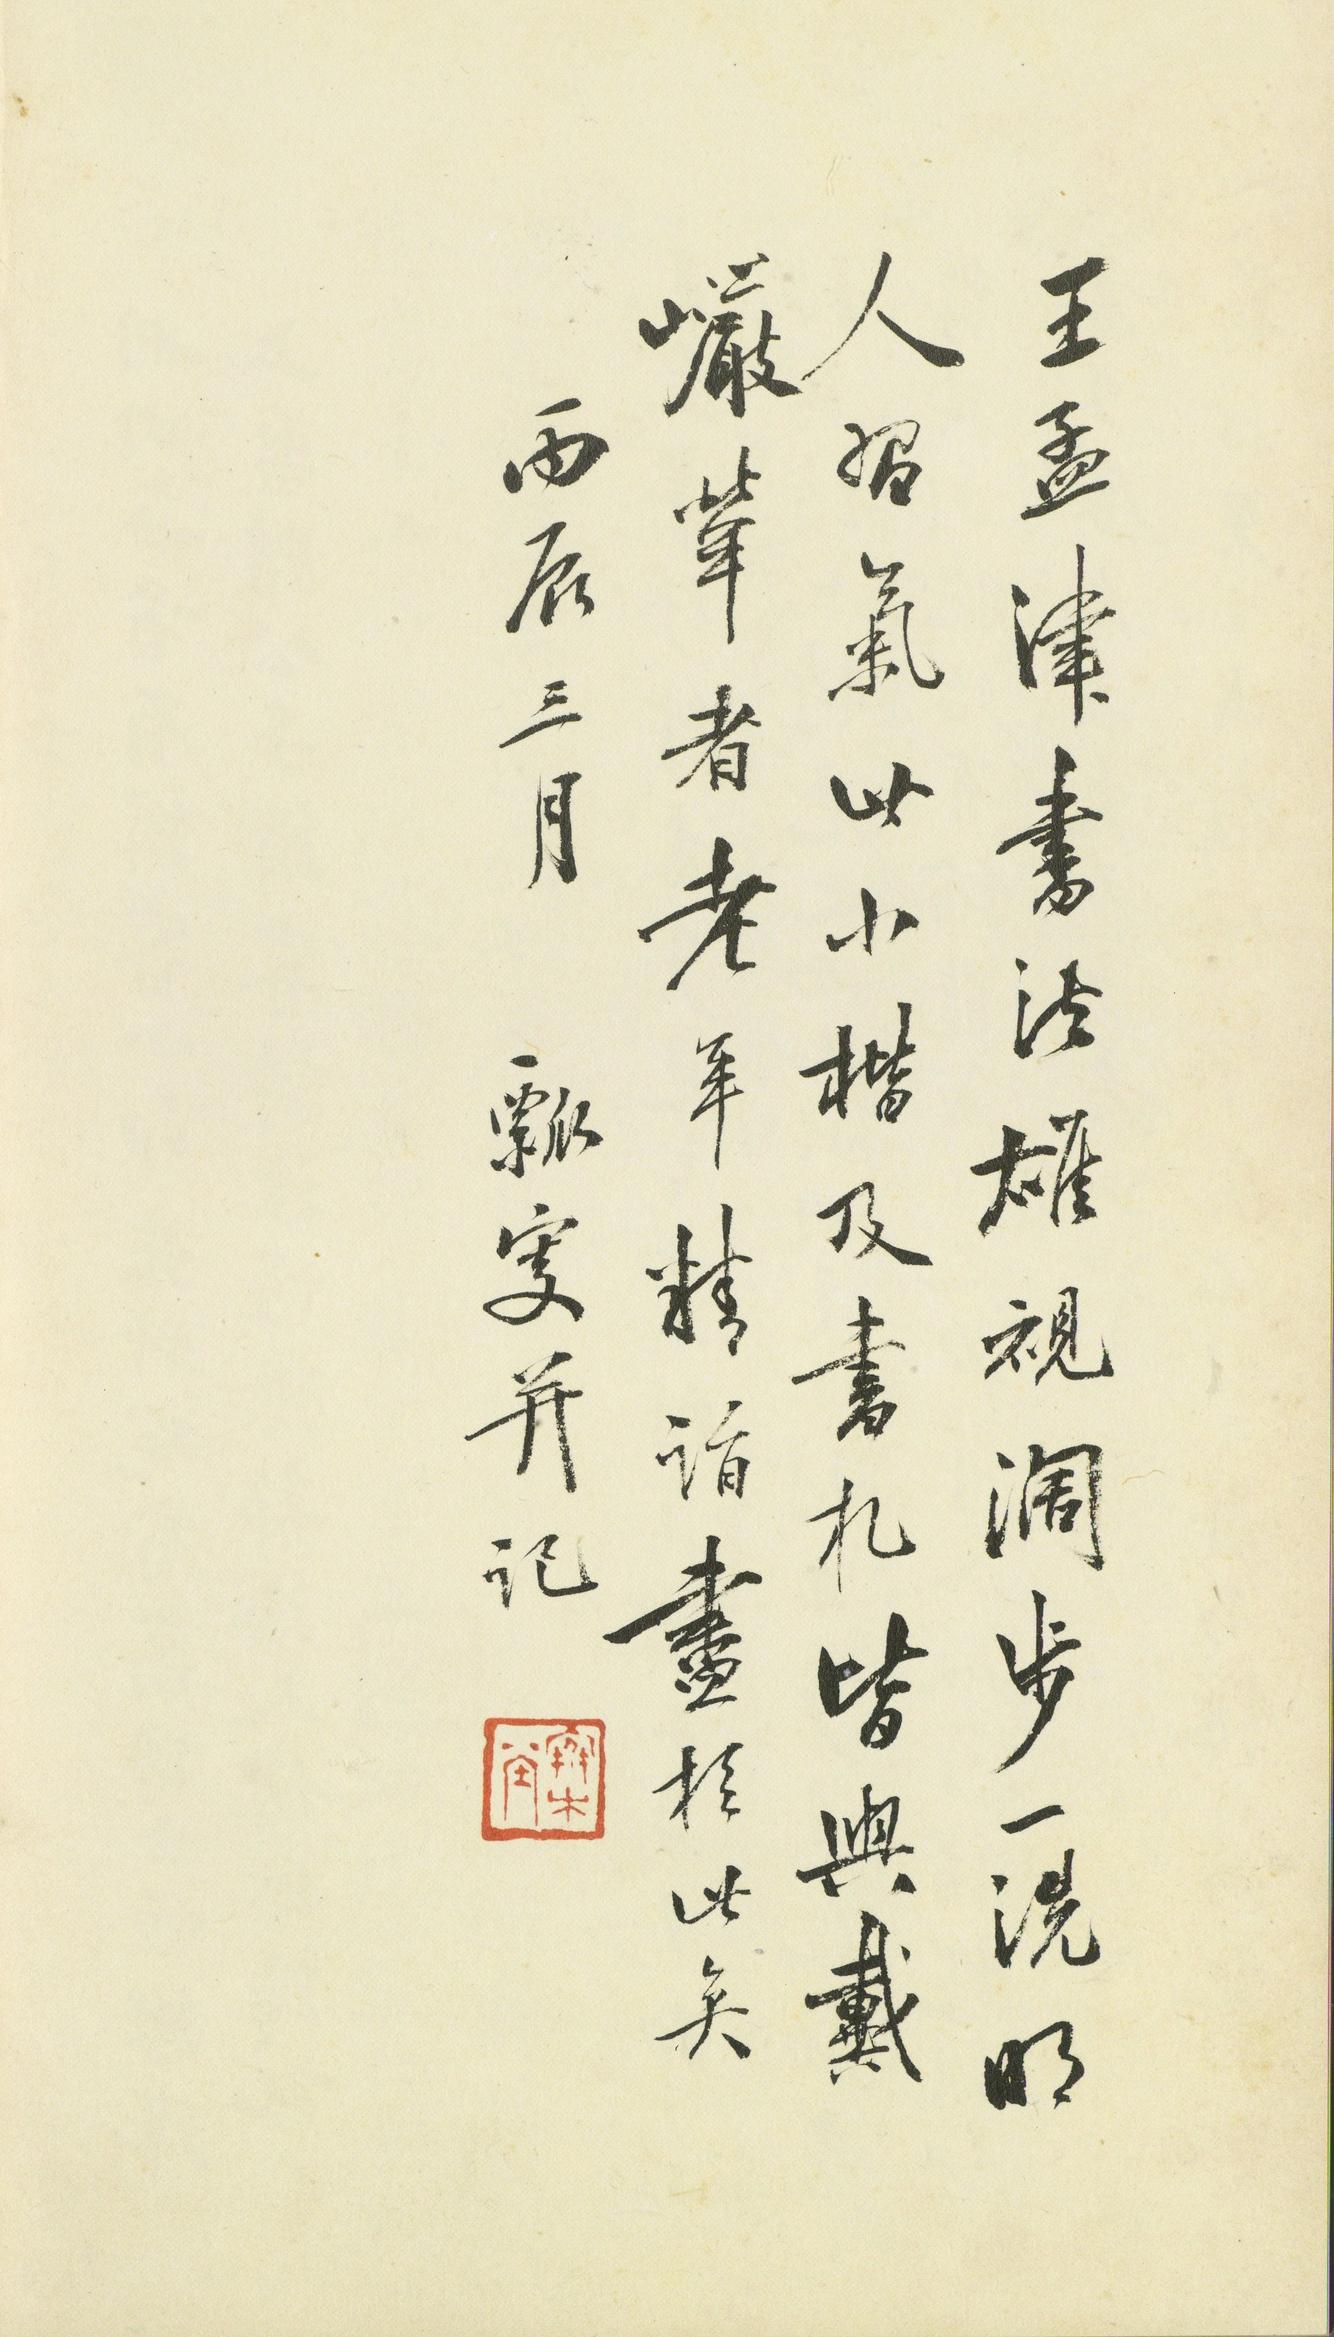 王孟津書法雄視濶步一洗明
人習氣此小楷及書札皆與戴
巖犖者老年精詣盡於此矣
丙辰三月 瓢叟并記